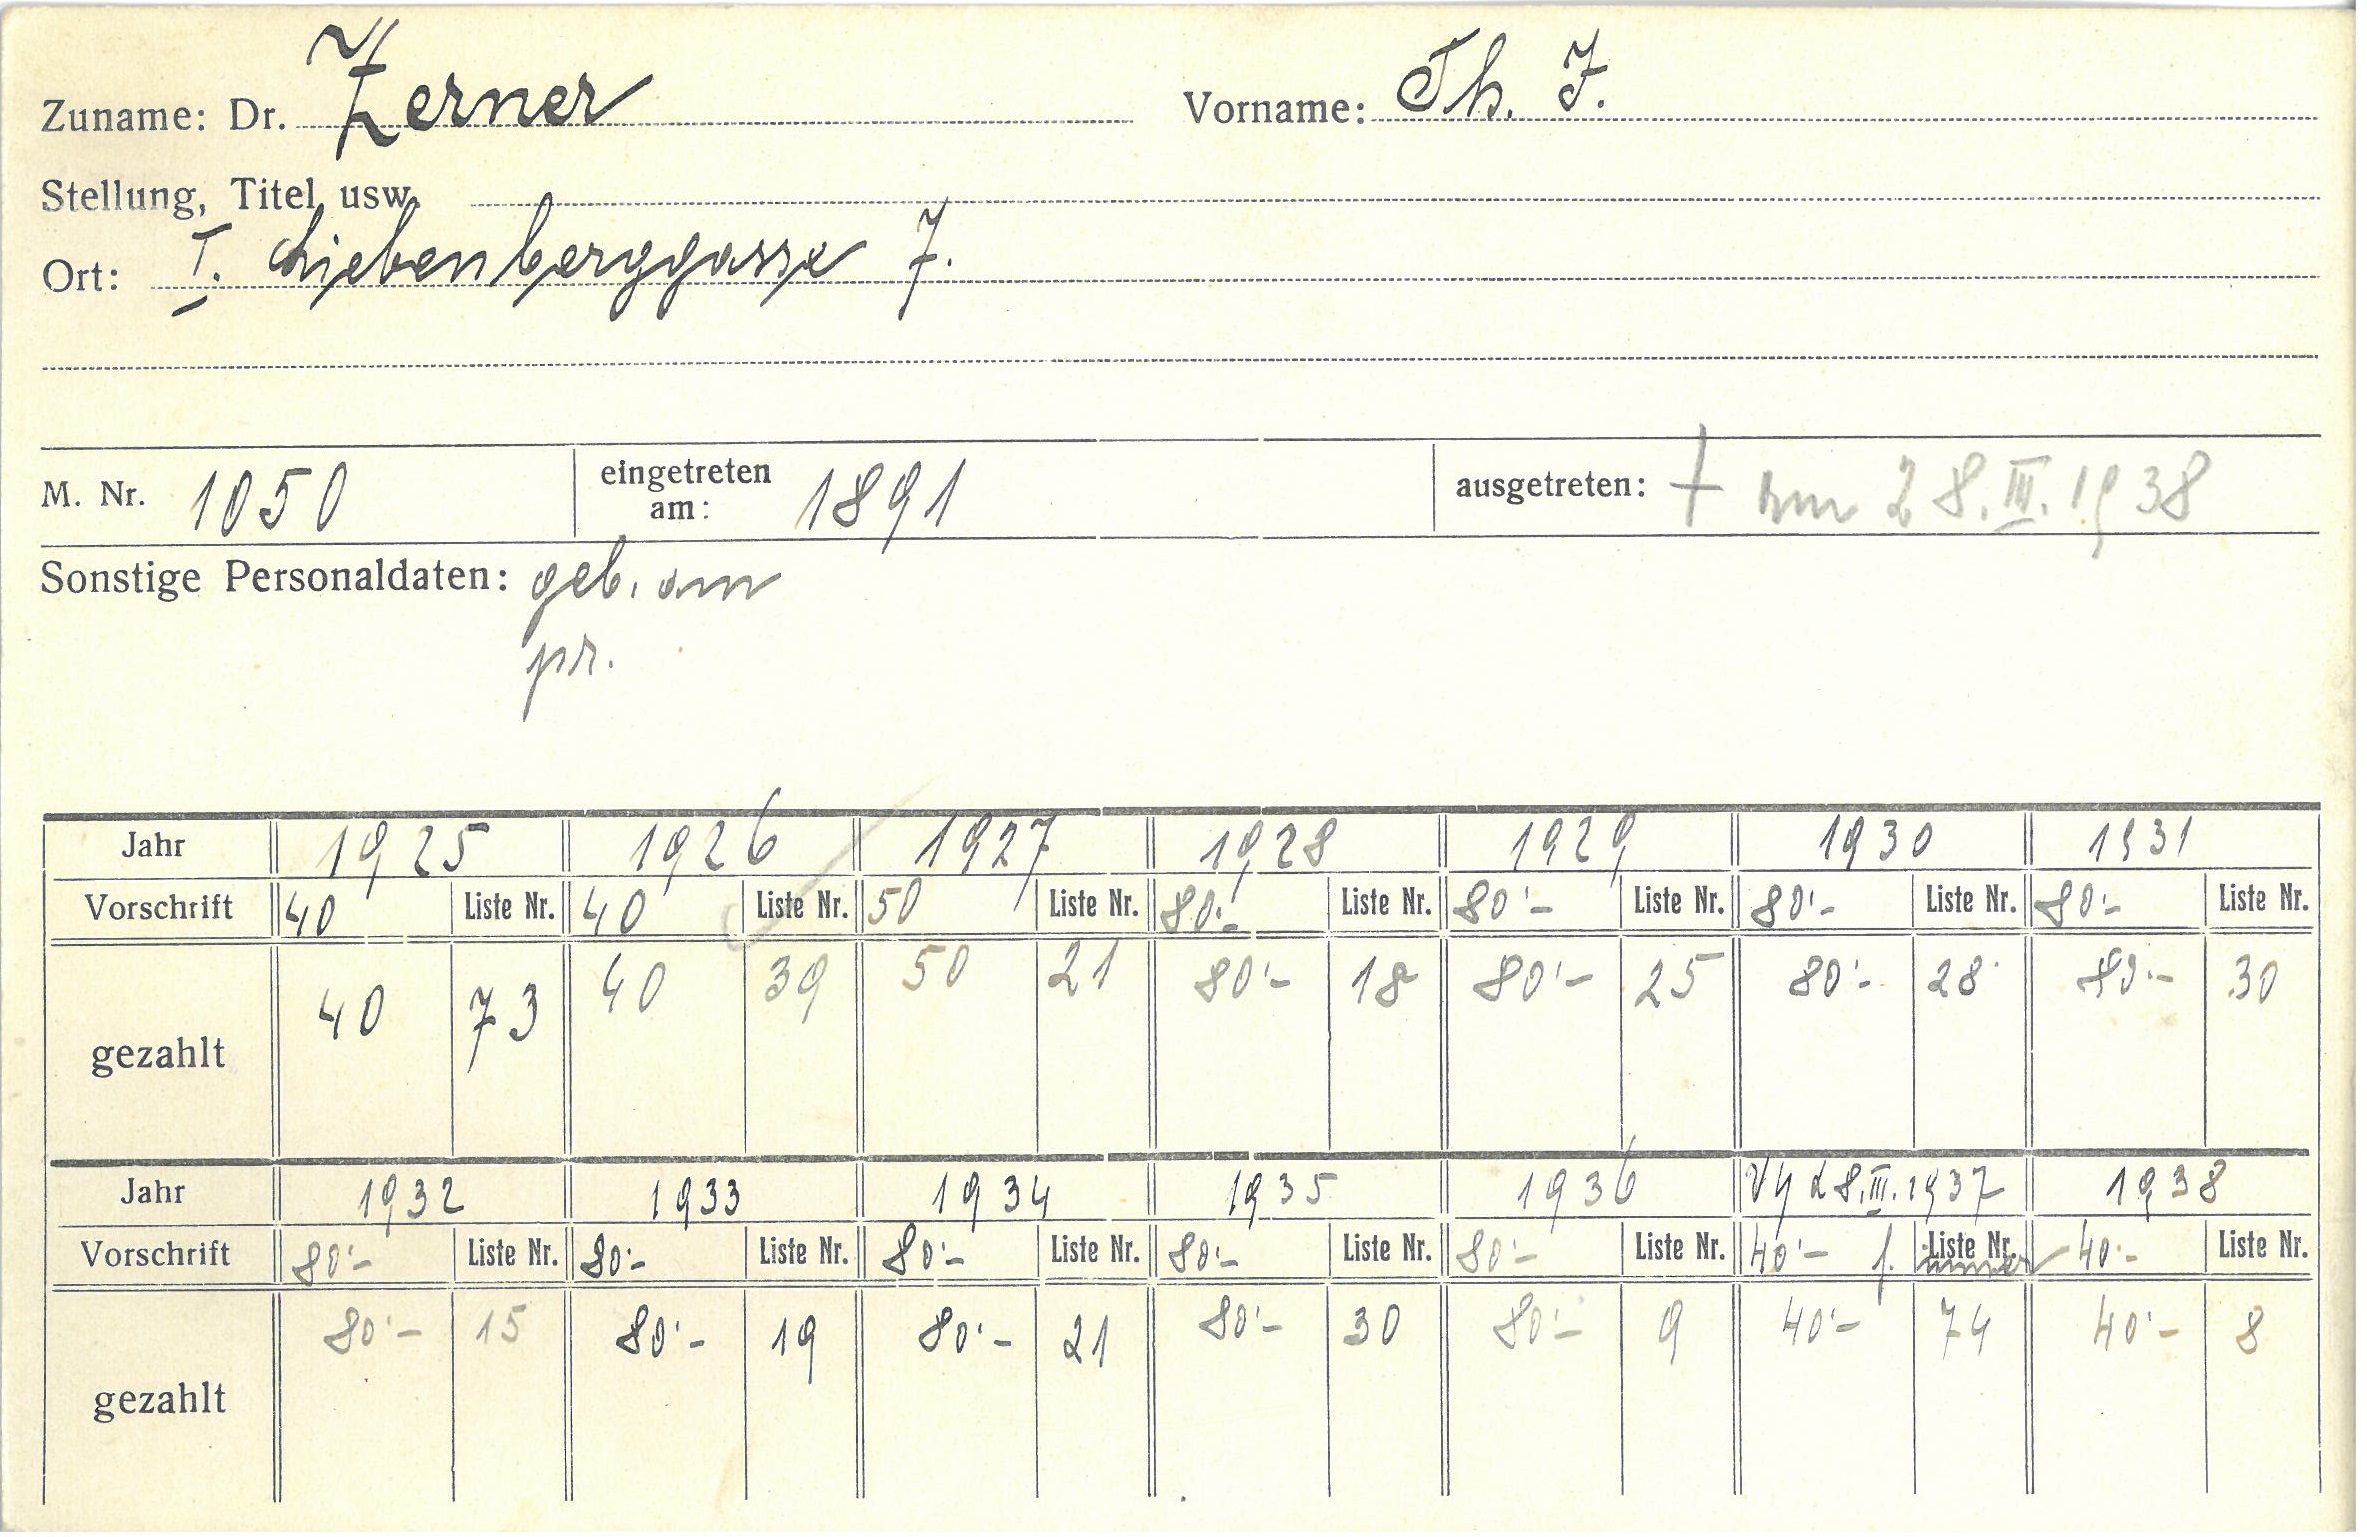 Zuname: Dr. Zerner Vorname: Th. J.
Stellung, Titel usw.
Ort: I. Liebenberggasse 7.
M. Nr. 1050 eingetreten am: 1891 ausgetreten: † am 28.III.1938
Sonstige Personaldaten: geb. am
pr.
Jahr 1925 1926 1927 1928 1929 1930 1931
Vorschrift 40 Liste Nr. 40 Liste Nr. 50 Liste Nr. 80'- Liste Nr. 80'- Liste Nr. 80'- Liste Nr. 80'- Liste Nr.
gezahlt 40 73 40 39 50 21 80'- 18 80'- 25 80'- 28 80'- 30
Jahr 1932 1933 1934 1935 1936 28.III.1937 1938
Vorschrift 80'- Liste Nr. 80'- Liste Nr. 80'- Liste Nr. 80'- Liste Nr. 80'- Liste Nr. 40'- f. Liste Nr. immer 40'- Liste Nr.
gezahlt 80'- 15 80'- 19 80'- 21 80'- 30 80'- 9 40'- 74 40'- 8